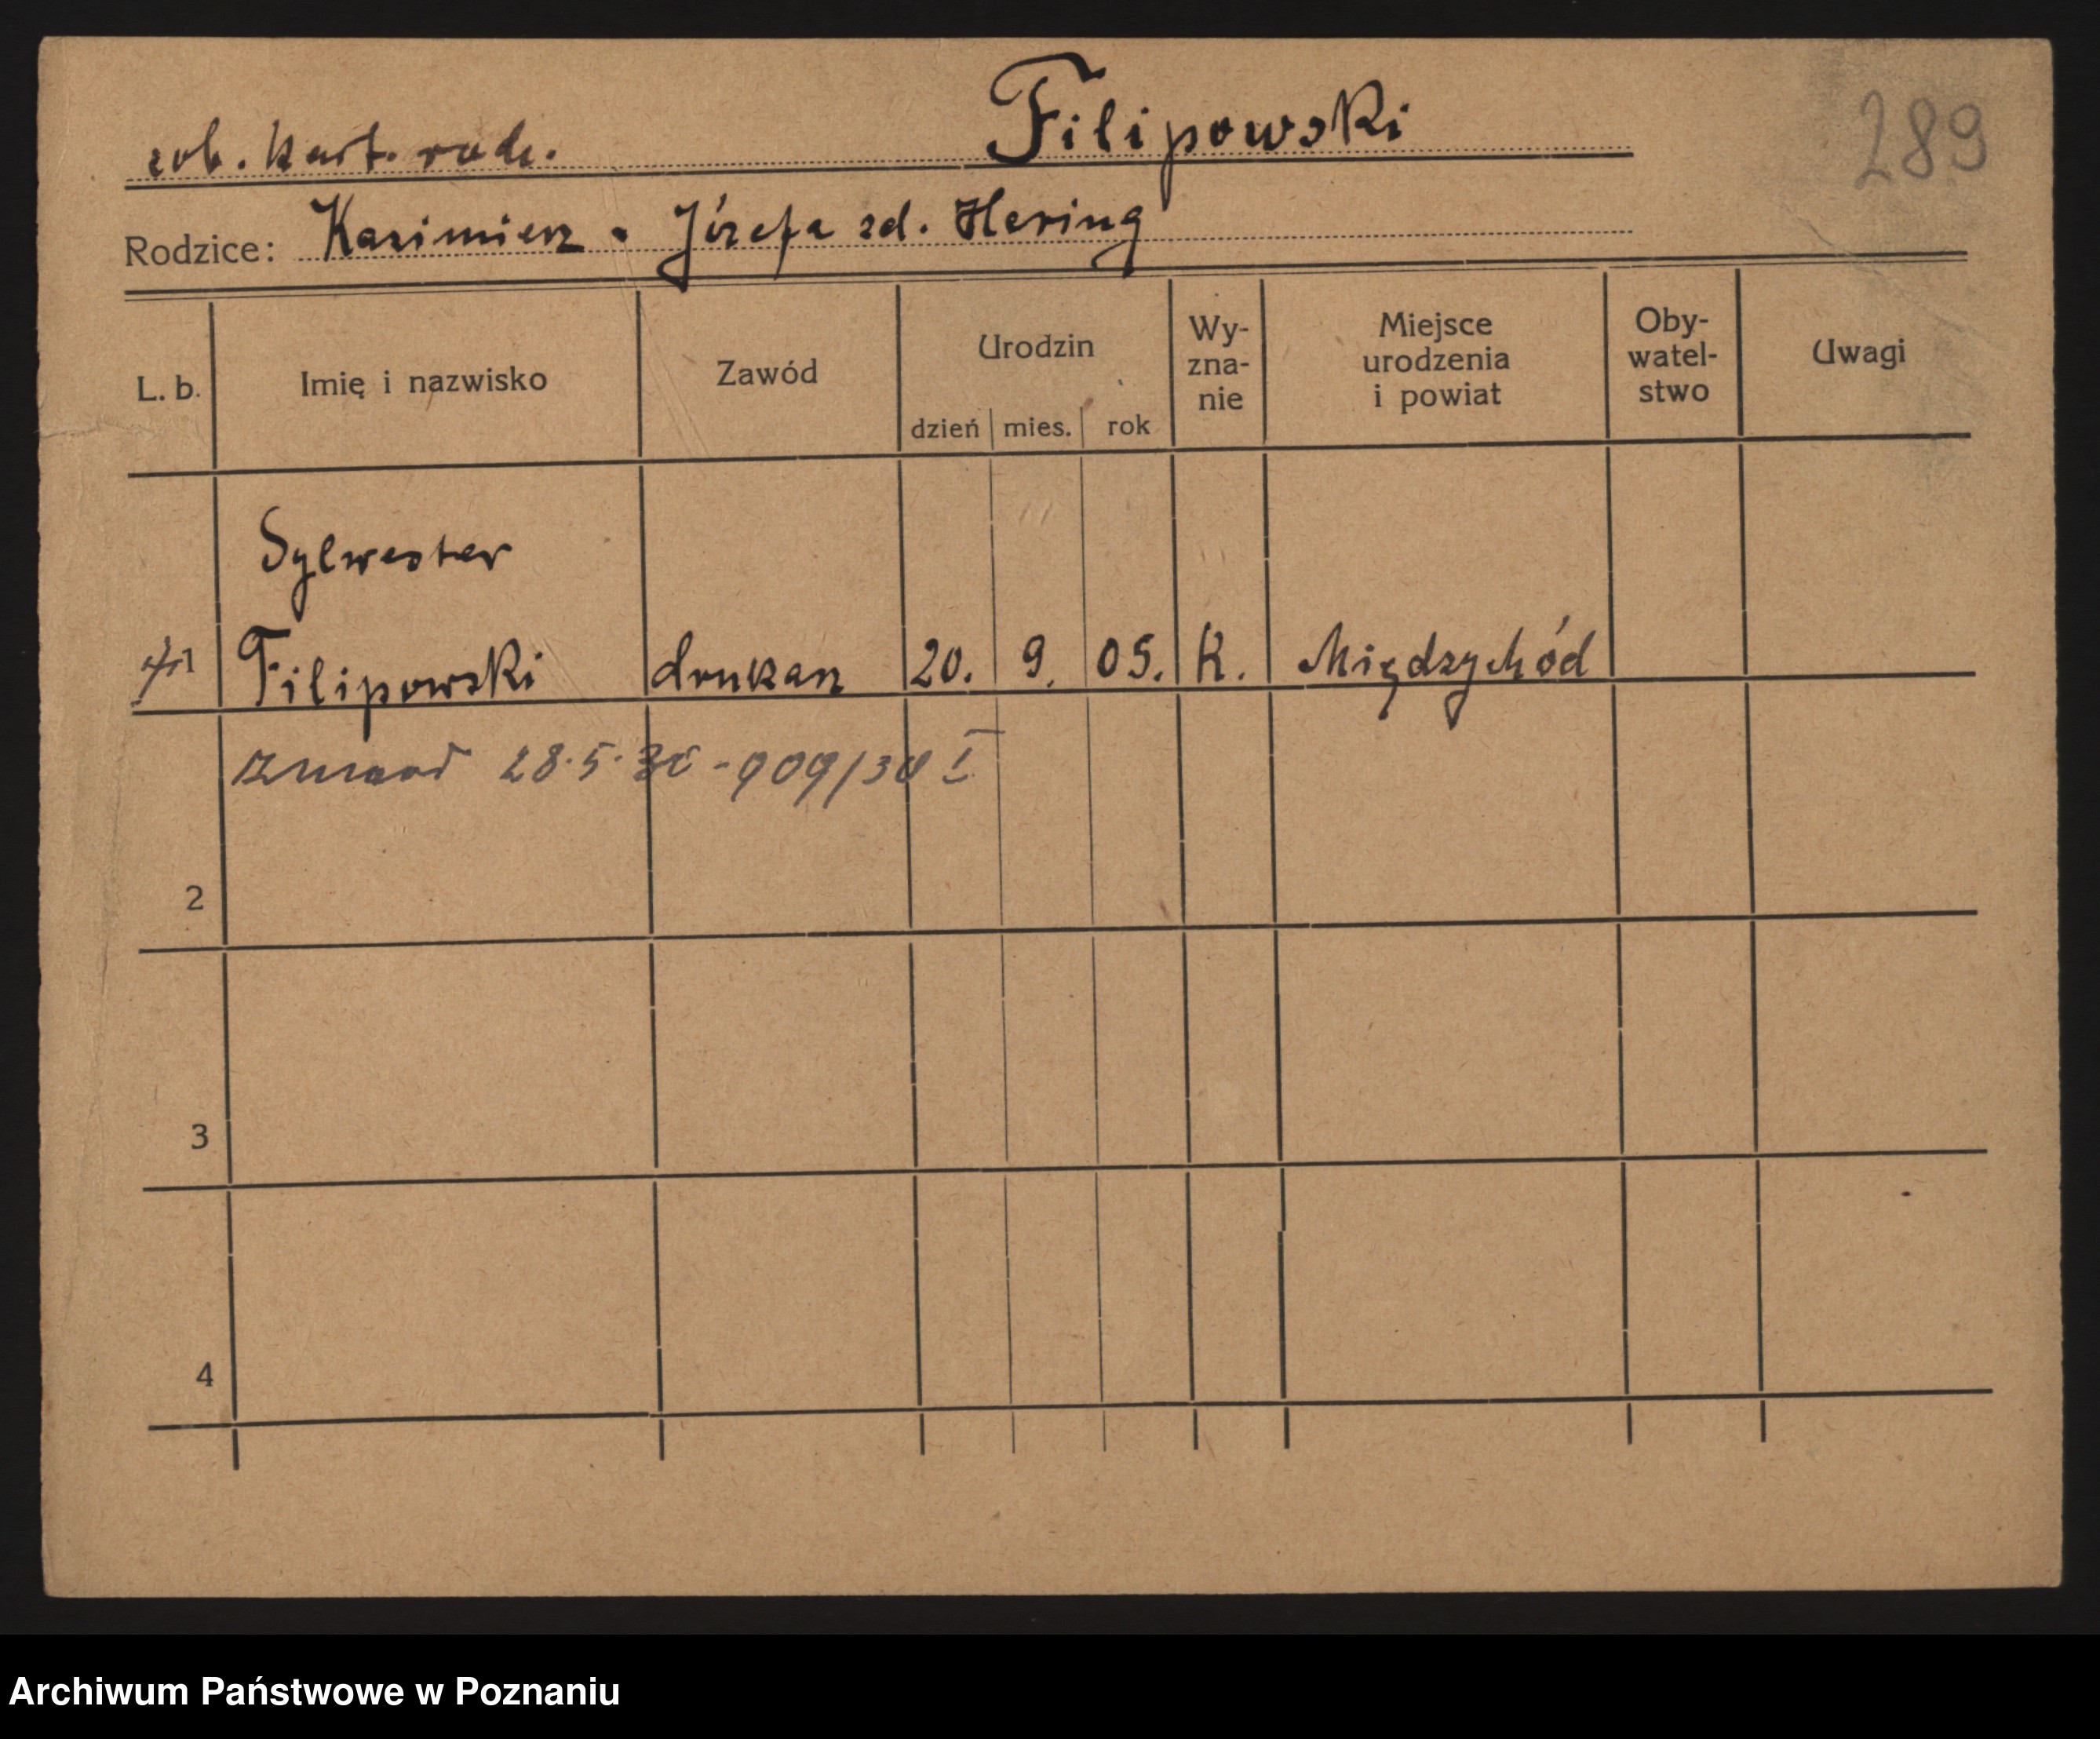 Filipowski
289
zob. Kart. rodz.
Rodzice: Kazimierz · Józefa zd. Hering
L. b. Imię i nazwisko Zawód Urodzin dzień mies. rok Wy-zna-nie Miejsce urodzenia i powiat Oby-watel-stwo Uwagi
Sylwester
1 Filipowski drukarz 20. 9. 05. K. Międzychód
zmarł 28.5.30 - 909/30 I
2
3
4
Archiwum Państwowe w Poznaniu